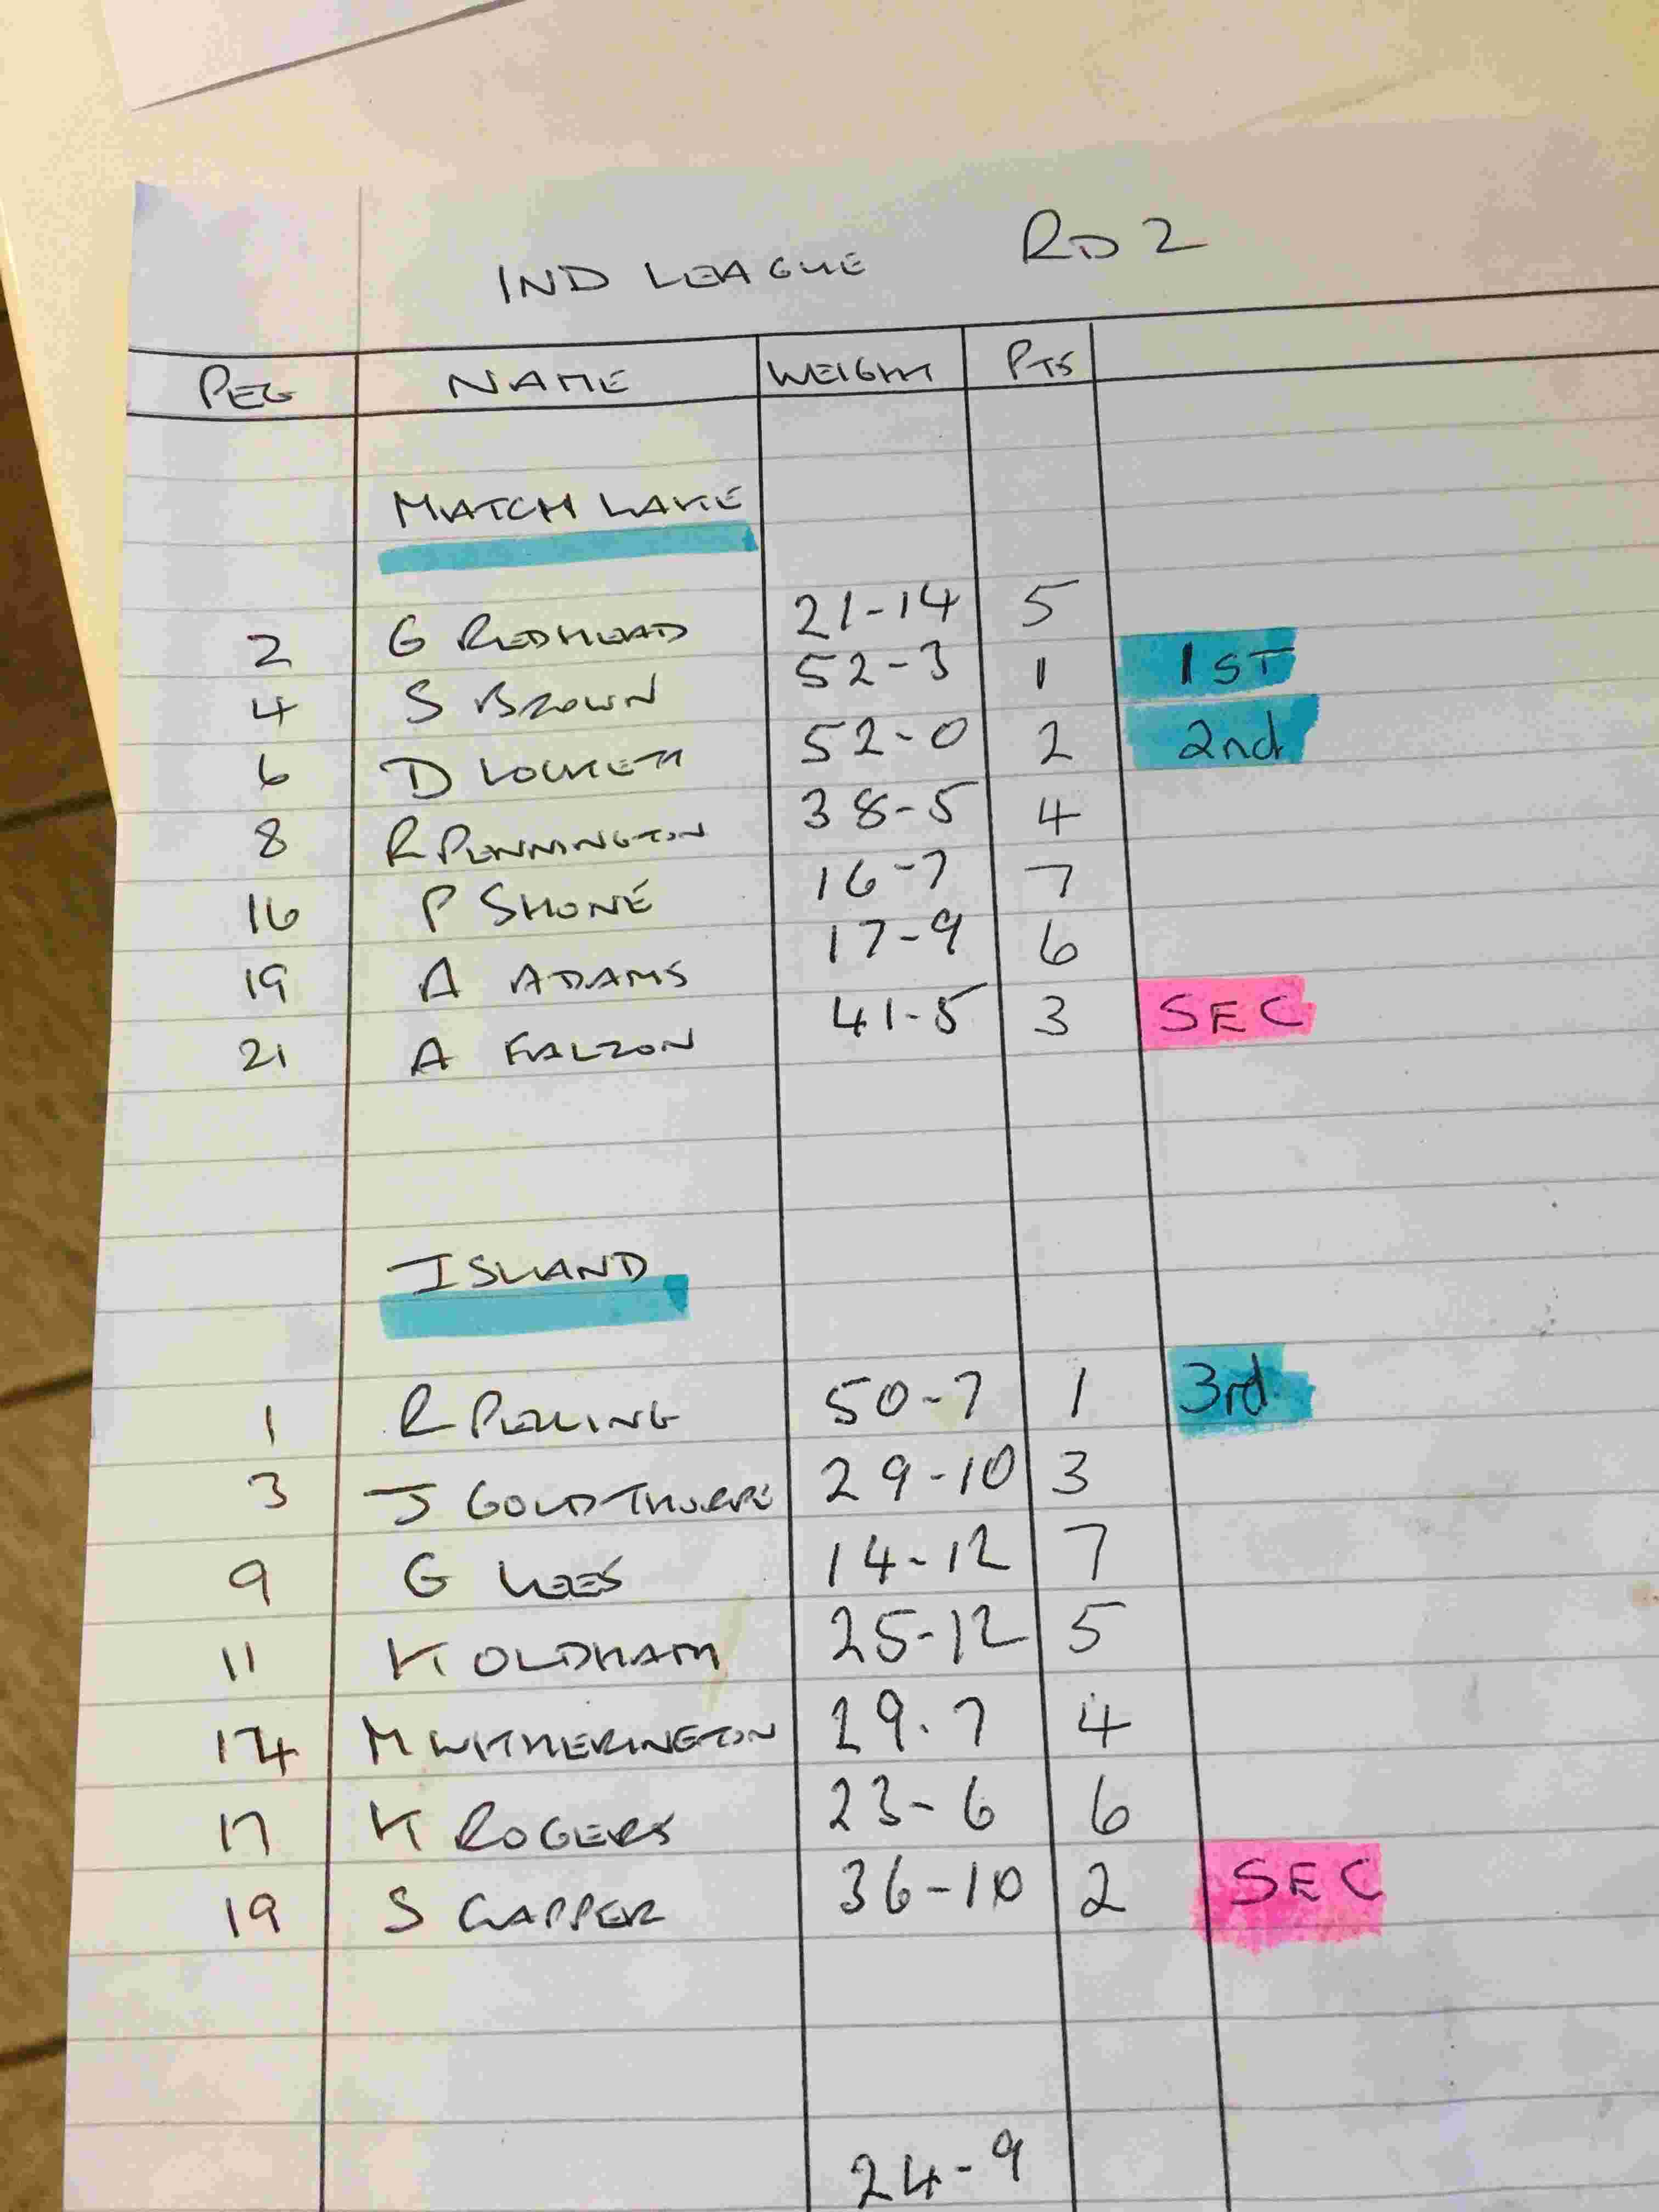 IND LEAGUE RD 2
PEG NAME WEIGHT PTS
MATCH LAKE
2 G REDHEAD 21-14 5
4 S BROWN 52-3 1 1ST
6 D LOCKETT 52-0 2 2nd
8 R PENNINGTON 38-5 4
16 P SHONE 16-7 7
19 A ADAMS 17-9 6
21 A FALZON 41-5 3 SEC
ISLAND
1 R PELLING 50-7 1 3rd
3 J GOLDTHORPE 29-10 3
9 G LEES 14-12 7
11 K OLDHAM 25-12 5
14 M WITHERINGTON 29-7 4
17 K ROGERS 23-6 6
19 S CAPPER 36-10 2 SEC
24-9